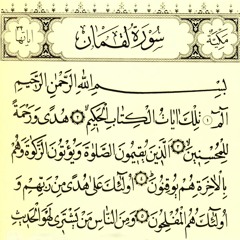 مكية سورة لقمان آياتها
بسم الله الرحمن الرحيم
الم ۝ تلك ءايات الكتاب الحكيم ۝ هدى ورحمة
للمحسنين ۝ الذين يقيمون الصلوة ويؤتون الزكوة وهم
بالآخرة هم يوقنون ۝ أولئك على هدى من ربهم و
أولئك هم المفلحون ۝ ومن الناس من يشترى لهو الحديث